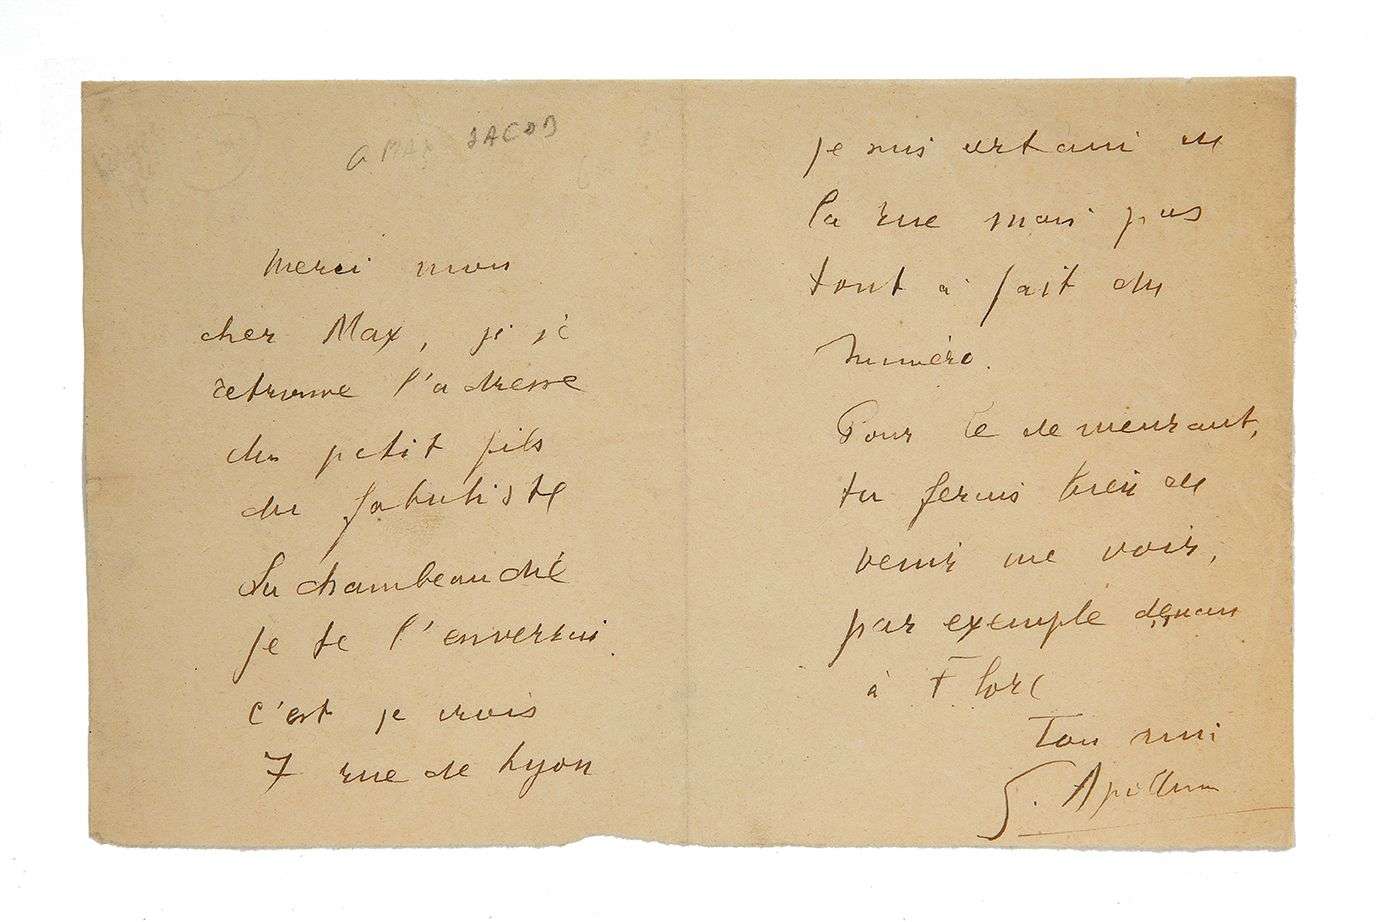 a MAX JACOB
Merci mon
cher Max, si je
retrouve l'adresse
du petit fils
du fabuliste
Lachambeaudie
je te l'enverrai
c'est je crois
7 rue de Lyon
je suis certain de
la rue mais pas
tout à fait du
numéro.
Pour le demeurant,
tu ferais bien de
venir me voir,
par exemple demain
à Flore
Ton ami
G. Apollinaire